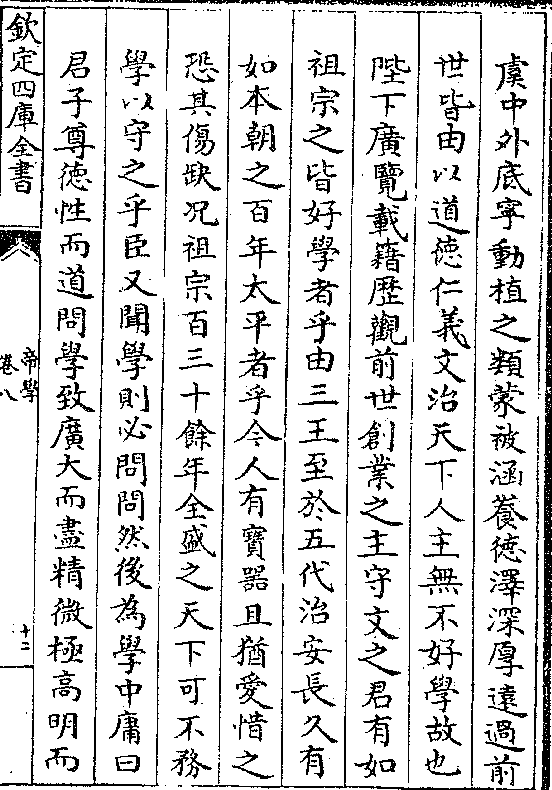 虞中外底寧動植之類蒙被涵養德澤深厚遠過前
世皆由以道德仁義文治天下人主無不好學故也
陛下廣覽載籍歷觀前世創業之主守文之君有如
祖宗之皆好學者乎由三王至於五代治安長久有
如本朝之百年太平者乎今人有寶器且猶愛惜之
恐其傷缺况祖宗百三十餘年全盛之天下可不務
學以守之乎臣又聞學則必問問然後為學中庸曰
君子尊德性而道問學致廣大而盡精微極高明而
欽定四庫全書
帝學
卷八
十二